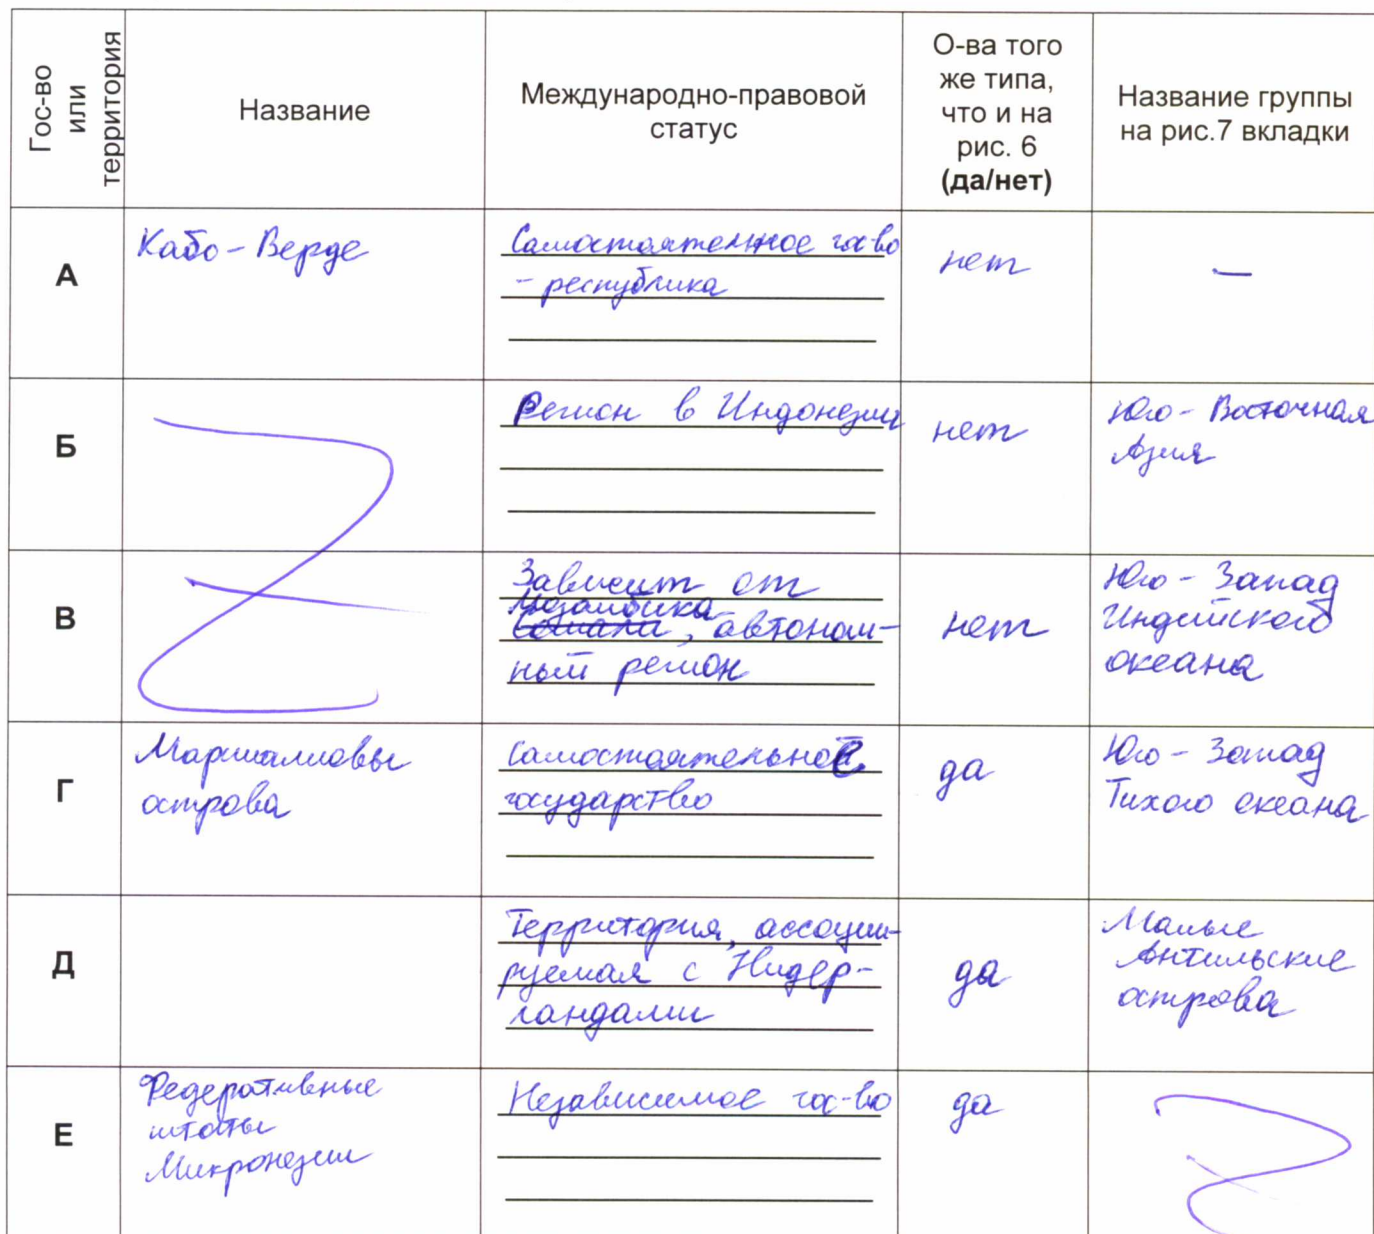 Гос-во
или
территория
Название
Международно-правовой
статус
О-ва того
же типа,
что и на
рис. 6
(да/нет)
Название группы
на рис.7 вкладки
А
Кабо-Верде
Самостоятельное гос-во
- республика
нет
—
Б
Регион в Индонезии
нет
Юго-Восточная
Азия
В
Зависит от
Мозамбика
Сомали, автоном-
ный регион
нет
Юго-Запад
Индийского
океана
Г
Маршалловы
острова
Самостоятельное
государство
да
Юго-Запад
Тихого океана
Д
Территория, ассоции-
руемая с Нидер-
ландами
да
Малые
Антильские
острова
Е
Федеративные
штаты
Микронезии
Независимое гос-во
да